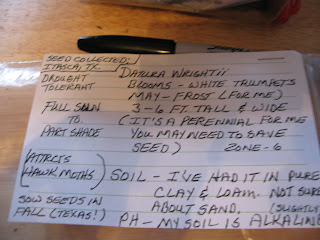 SEED COLLECTED:
ITASCA, TX.
DROUGHT
TOLERANT
FULL SUN
TO
PART SHADE
(ATTRCTS
HAWK MOTHS)
SOW SEEDS IN
FALL (TEXAS!)
DATURA WRIGHTII
BLOOMS - WHITE TRUMPETS
MAY - FROST (FOR ME)
3-6 FT. TALL & WIDE
(IT'S A PERENNIAL FOR ME
YOU MAY NEED TO SAVE
SEED) ZONE-6
SOIL - I'VE HAD IT IN PURE
CLAY & LOAM. NOT SURE
ABOUT SAND. (SLIGHTLY
PH - MY SOIL IS ALKALINE